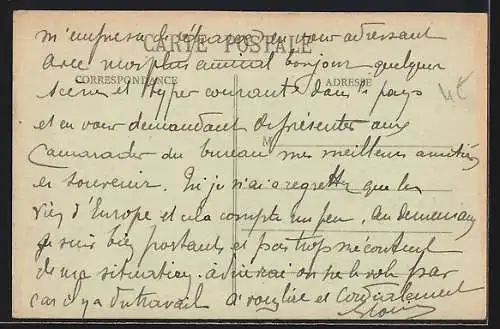 CARTE POSTALE
CORRESPONDANCE
ADRESSE
M
m'empresse d'échange en vous adressant
avec mes plus amical bonjour quelques
scènes et types courants dans le pays
et en vous demandant de présenter aux
camarades du bureau mes meilleurs amitiés
et souvenir. Ici je n'ai à regretter que les
d'Europe et cela compte un peu. Au demeurant
je suis bien portant et pas trop mécontent
de ma situation.
car il y a du travail à vous lire et cordialement